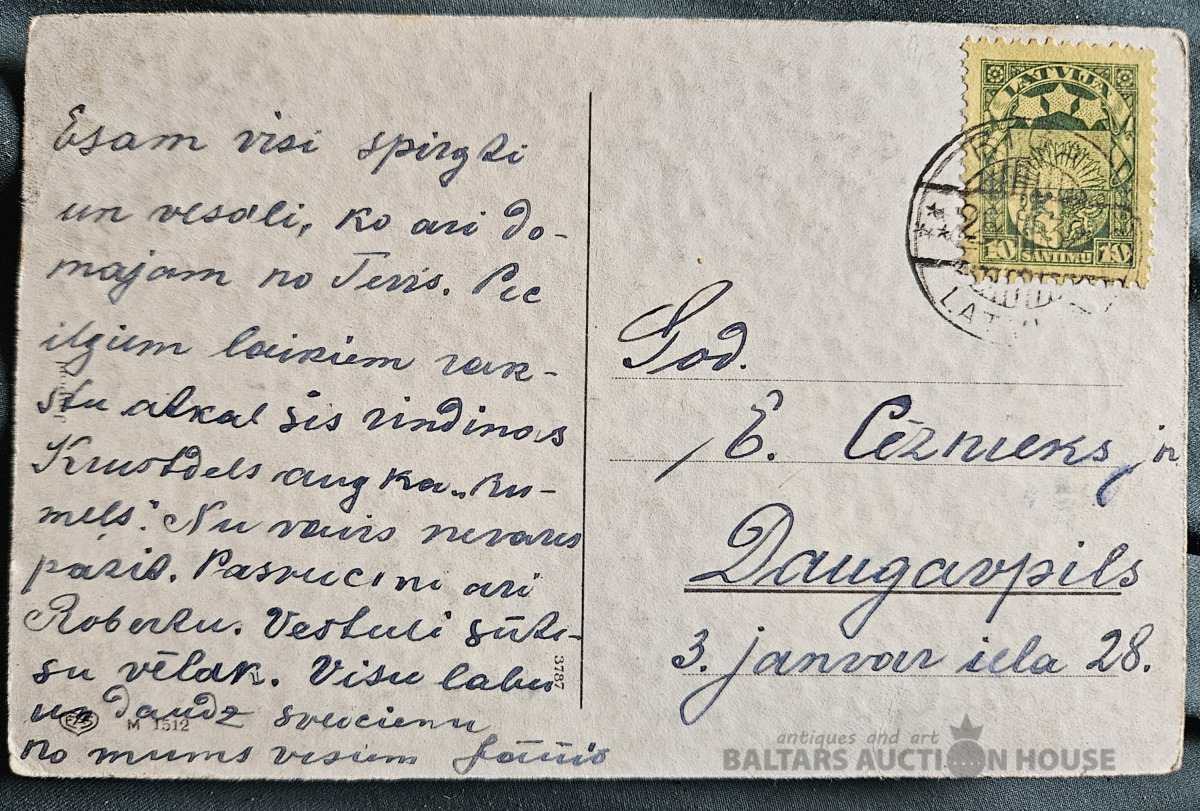 Esam visi spirgti
un veseli, ko ari do-
majam no Tevis. Pec
ilgiem laikiem rak-
stu atkal šis rindinas
Krustdels aug ka „Ru-
mels". Nu vairs nevares
pazit. Pasveicini ari
Robertu. Vestuli sūti-
su vēlak. Visu labu
un daudz sveicienu
no mums visiem Jānis
3787
M 1512
LATVIJA
10 SANTIMU
LAT
God.
E. Cēznieks, jn
Daugavpils
3. janvar iela 28.
antiques and art
BALTARS AUCTION HOUSE